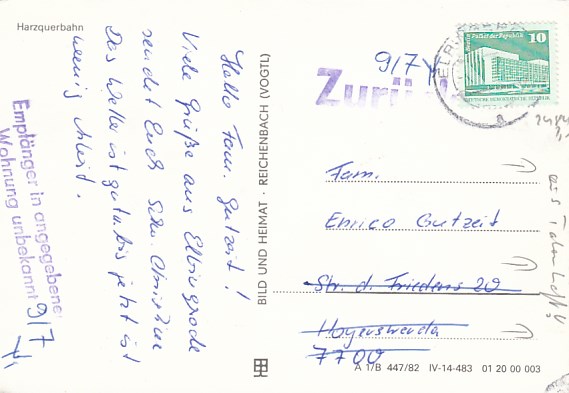 Harzquerbahn
Hallo Fam. Gutzeit!
Viele Grüße aus Elbingerode
sendet Euch Schw. Christine
Das Wetter ist gut u. bis jetzt ist
wenig Schnee.
Empfänger in angegebener
Wohnung unbekannt
9/7
BILD UND HEIMAT · REICHENBACH (VOGTL)
9/7
Zurück
Palast der Republik
10
DEUTSCHE DEMOKRATISCHE REPUBLIK
Fam.
Enrico Gutzeit
Str. d. Friedens 20
Hoyerswerda
7700
A 1/B 447/82 IV-14-483 01 20 00 003